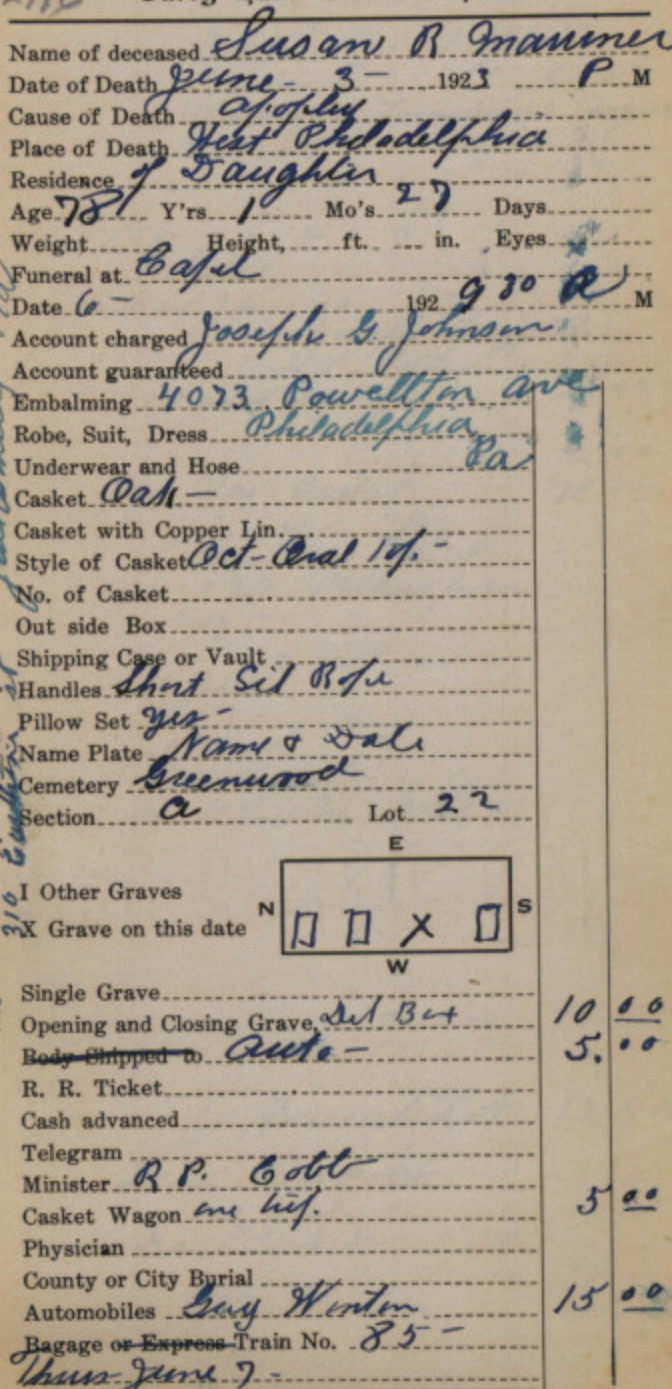 Name of deceased Susan R Mariner
Date of Death June - 3 - 1923 P M
Cause of Death apoplexy
Place of Death West Philadelphia
Residence of Daughter
Age 78 Y'rs 1 Mo's 27 Days
Weight Height, ft. in. Eyes
Funeral at Capel
Date 6 - 192 9 30 a M
Account charged Joseph G Johnson
Account guaranteed
Embalming 4073 Powellton ave
Robe, Suit, Dress Philadelphia
Underwear and Hose Pa
Casket Oak -
Casket with Copper Lin.
Style of Casket Oct-Oval Top -
No. of Casket
Out side Box
Shipping Case or Vault
Handles Short Sil Rope
Pillow Set yes -
Name Plate Name & Date
Cemetery Greenwood
Section a Lot 22
E
I Other Graves
N S
X Grave on this date X
W
Single Grave
Opening and Closing Grave, Del Box 10 00
Body Shipped to auto - 5.00
R. R. Ticket
Cash advanced
Telegram
Minister R P. Cobb
Casket Wagon one trip. 5 00
Physician
County or City Burial
Automobiles Guy Winton 15 00
Bagage or Express Train No. 85 -
Thurs June 7 -
310 st